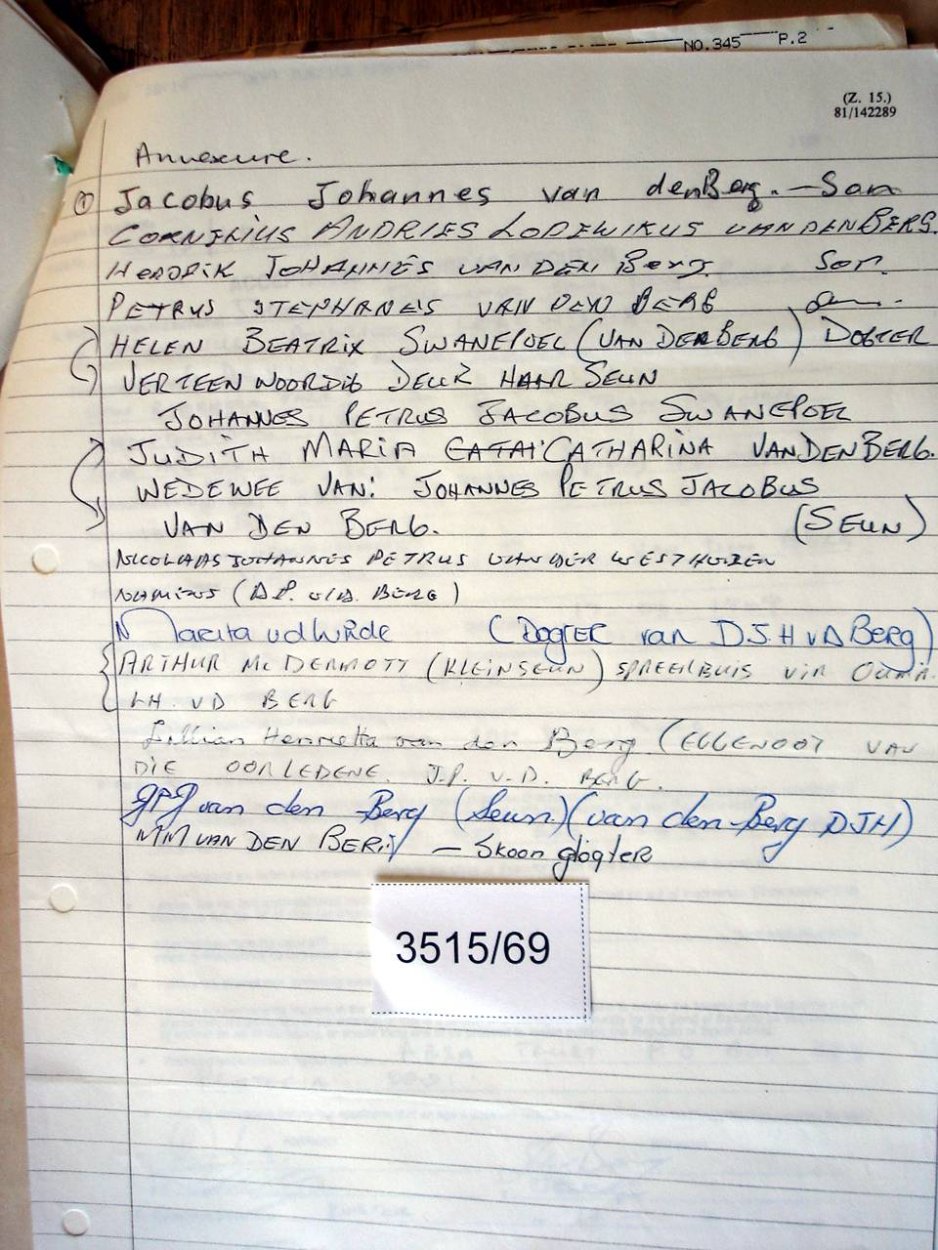 NO.345 P.2
(Z. 15.)
81/142289
Annexure.
① Jacobus Johannes van denBerg. — Son
CORNELIUS ANDRIES LODEWIKUS VANDENBERG.
HENDRIK JOHANNES VAN DEN Berg. Son.
PETRUS STEPHANES VAN DEN BERG
HELEN BEATRIX SWANEPOEL (VAN DENBERG) DOGTER
VERTEENWOORDIG DEUR HAAR SEUN
JOHANNES PETRUS JACOBUS SWANEPOEL
JUDITH MARIA CATAI CATHARINA VANDENBERG.
WEDEWEE VAN: JOHANNES PETRUS JACOBUS
VAN DEN BERG. (SEUN)
NICOLAAS JOHANNES PETRUS VAN DER WESTHUIZEN
NAMENS (D.P. V/D. BERG)
Marita vd Walde (Dogter van D.J.H vd Berg)
ARTHUR McDERMOTT (KLEINSEUN) SPREEKBUIS VIR OUMA
LH. VD BERG
Lillian Henrietta van den Berg (EGGENOOT VAN
DIE OORLEDENE. J.P. V.D. BERG.
JPJ van den Berg (Seun) (van den Berg DJH)
MM VAN DEN BERG — Skoondogter
3515/69